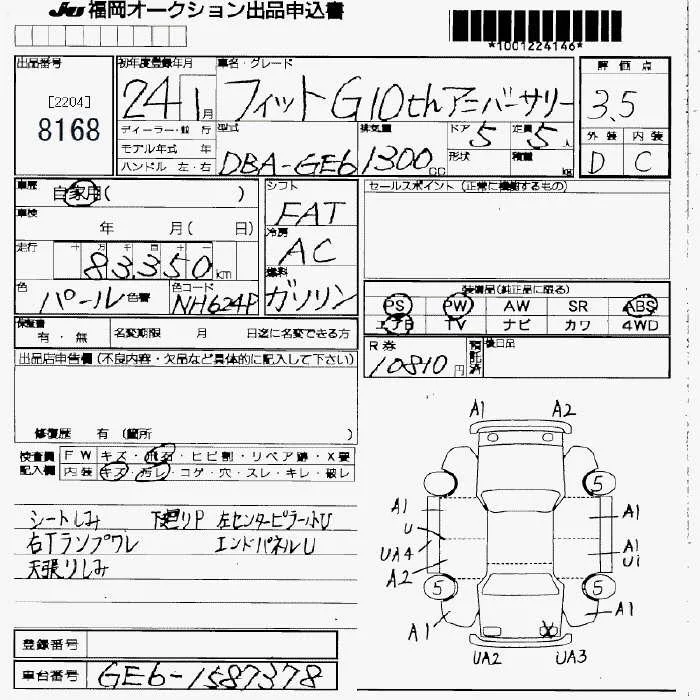 JU 福岡オークション出品申込書
*1001224146*
出品番号 初年度登録年月 車名・グレード 評価点
[2204]
8168
24 1月 フィットG10thアニバーサリー 3.5
ディーラー・並 行 型式 排気量 ドア 定員 外装 内装
モデル年式 年 DBA-GE6 1300cc 5 5人 D C
ハンドル 左・右 形状 積量 kg
車歴 自家用( ) シフト セールスポイント (正常に機能するもの)
FAT
車検 年 月( 日) 冷房
AC
走行 十 万 千 百 十
83,350km 燃料
ガソリン
色 パール 色替 色コード NH624P
装備品(純正品に限る)
PS PW AW SR ABS
エアB TV ナビ カワ 4WD
保証書 有・無 名変期限 月 日迄に名変できる方
R券 10810円 預託済 後日品
出品店申告欄 (不良内容・欠品など具体的に記入して下さい)
修復歴 有 (箇所 )
検査員 FW キズ・飛石・ヒビ割・リペア跡・X要
記入欄 内装 キズ・汚レ・コゲ・穴・スレ・キレ・破レ
シートしみ 下廻りP 左センターピラー小U
右Tランプワレ エンドパネルU
天張りしみ
A1 A2
5
A1 A1
U
UA4 A1
A2 U1
5 5
A1 A1
X
UA2 UA3
登録番号
車台番号 GE6-1587378